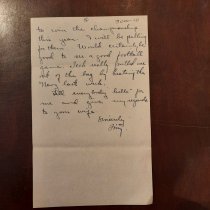 to win the championship
this year. I will be pulling
for them. Would certainly be
good to see a good football
game. Tech really pulled one
out of the bag by beating the
Navy last week.
Tell everybody "hello" for
me and give my regards
to your wife.
Sincerely